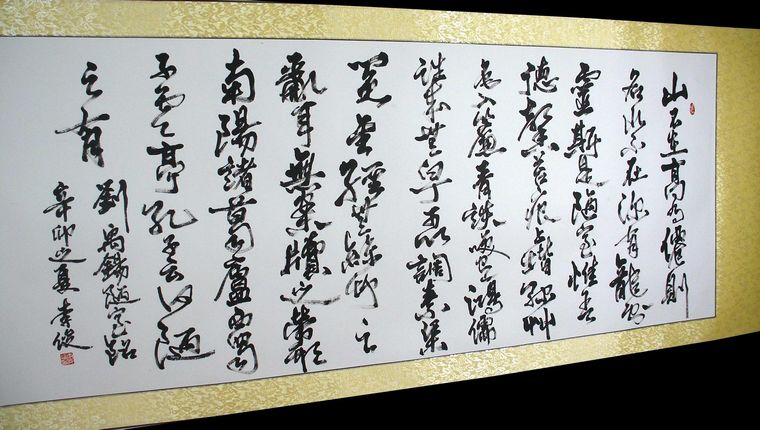 山不在高有僊則
名水不在深有龍則
靈斯是陋室惟吾
德馨苔痕上階綠艸
色入簾青談笑有鴻儒
往來無白丁可以調素琴
閱金經無絲竹之
亂耳無案牘之勞形
南陽諸葛廬西蜀
子雲亭孔子云何陋
之有
劉禹錫陋室銘
辛卯之夏李